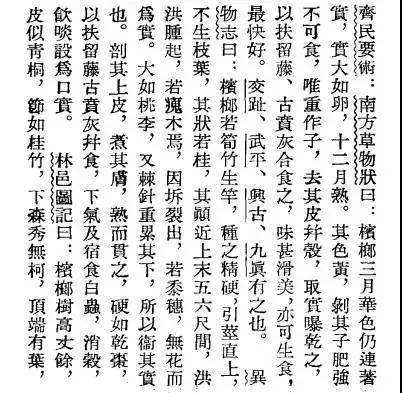 齊民要術：南方草物狀曰：檳榔三月華色仍連著
實，實大如卵，十二月熟。其色黃，剝其子肥強
不可食，唯重作子，去其皮幷殼，取實曝乾之，
以扶留藤、古賁灰合食之，味甚滑美，亦可生食，
最快好。交趾、武平、興古、九眞有之也。　異
物志曰：檳榔若筍竹生竿，種之精硬，引莖直上，
不生枝葉，其狀若桂，其顛近上末五六尺間，洪
洪腫起，若瘣木焉，因坼裂出，若黍穗，無花而
爲實。大如桃李，又棘針重累其下，所以衞其實
也。剖其上皮，煮其膚，熟而貫之，硬如乾棗，
以扶留藤古賁灰幷食，下氣及宿食白蟲，消穀，
飮啖設爲口實。　林邑圖記曰：檳榔樹高丈餘，
皮似青桐，節如桂竹，下森秀無柯，頂端有葉，